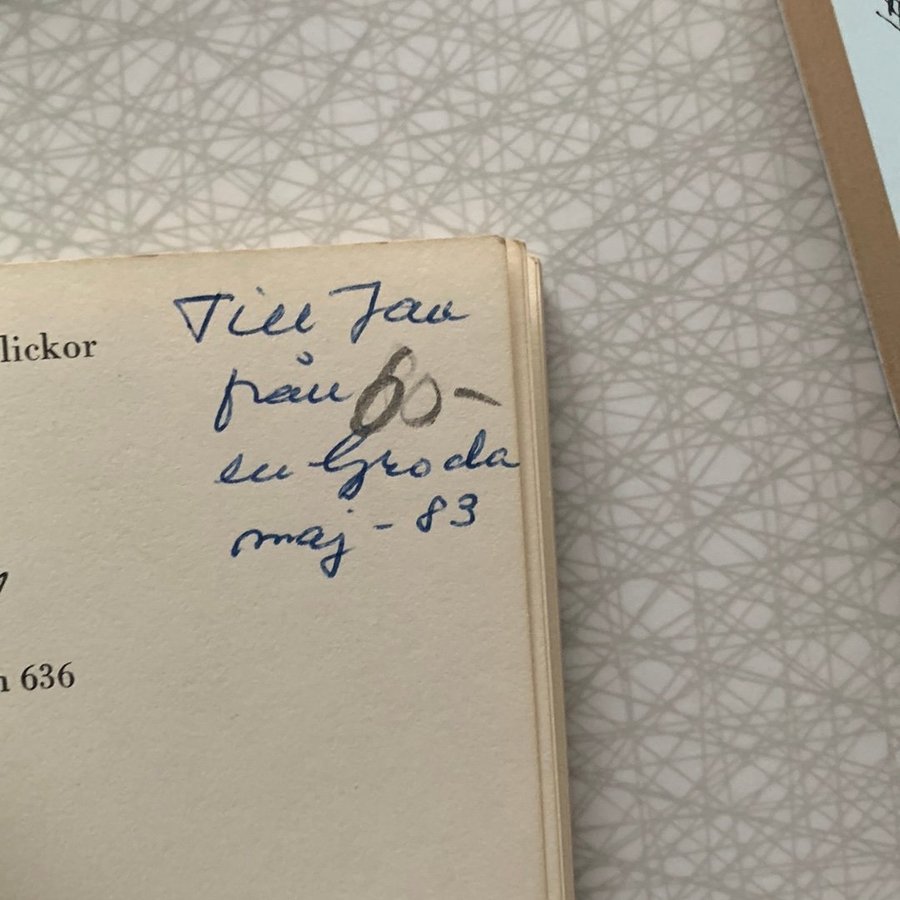 Till Jan
lickor
från 60-
en Groda
maj - 83
n 636